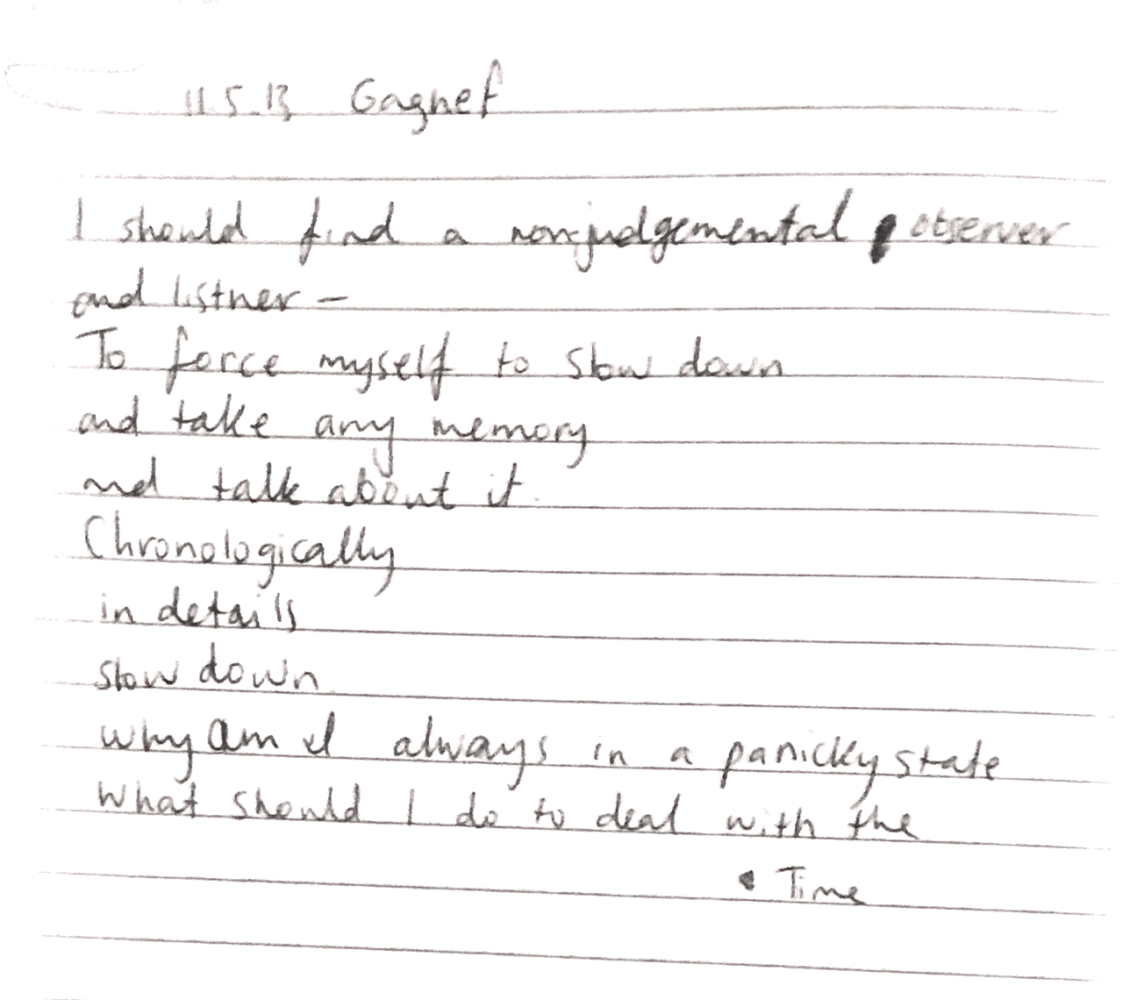 11.5.13 Gagnef
I should find a nonjudgemental observer
and listner –
To force myself to slow down
and take any memory
and talk about it.
Chronologically
in details
slow down
why am I always in a panicky state
what should I do to deal with the
Time